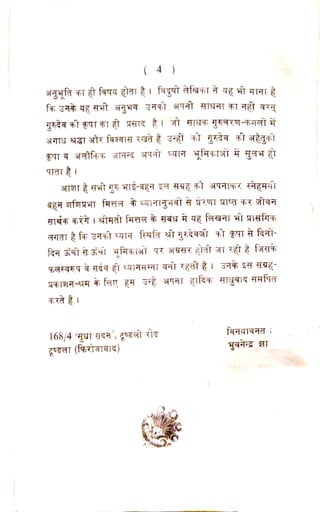 ( 4 )
अनुभूति का ही विषय होता है । विदुषी लेखिका ने यह भी माना है
कि उनके यह सभी अनुभव उनकी अपनी साधना का नहीं वरन्
गुरुदेव की कृपा का ही प्रसाद है । जो साधक गुरुचरण-कमलों में
अगाध श्रद्धा और विश्वास रखते हैं उन्हीं को गुरुदेव की अहैतुकी
कृपा व अलौकिक आनन्द अपनी ध्यान भूमिकाओं में सुलभ हो
पाता है ।
आशा है सभी गुरु भाई-बहन इस संग्रह को अपनाकर स्नेहमयी
बहन शशिप्रभा मित्तल के ध्यानानुभवों से प्रेरणा प्राप्त कर जीवन
सार्थक करेंगे । श्रीमती मित्तल के संबंध में यह लिखना भी प्रासंगिक
लगता है कि उनकी ध्यान स्थिति श्री गुरुदेवजी की कृपा से दिनो-
दिन ऊँची से ऊँची भूमिकाओं पर अग्रसर होती जा रही है जिसके
फलस्वरुप वे सदैव ही ध्यानमग्ना बनी रहती हैं । उनके इस संग्रह-
प्रकाशन-श्रम के लिए हम उन्हें अपना हार्दिक साधुवाद समर्पित
करते हैं ।
विनयावनत :
168/4 'सुधा सदन', टूण्डली रोड
भुवनेन्द्र झा
टूण्डला (फिरोजाबाद)